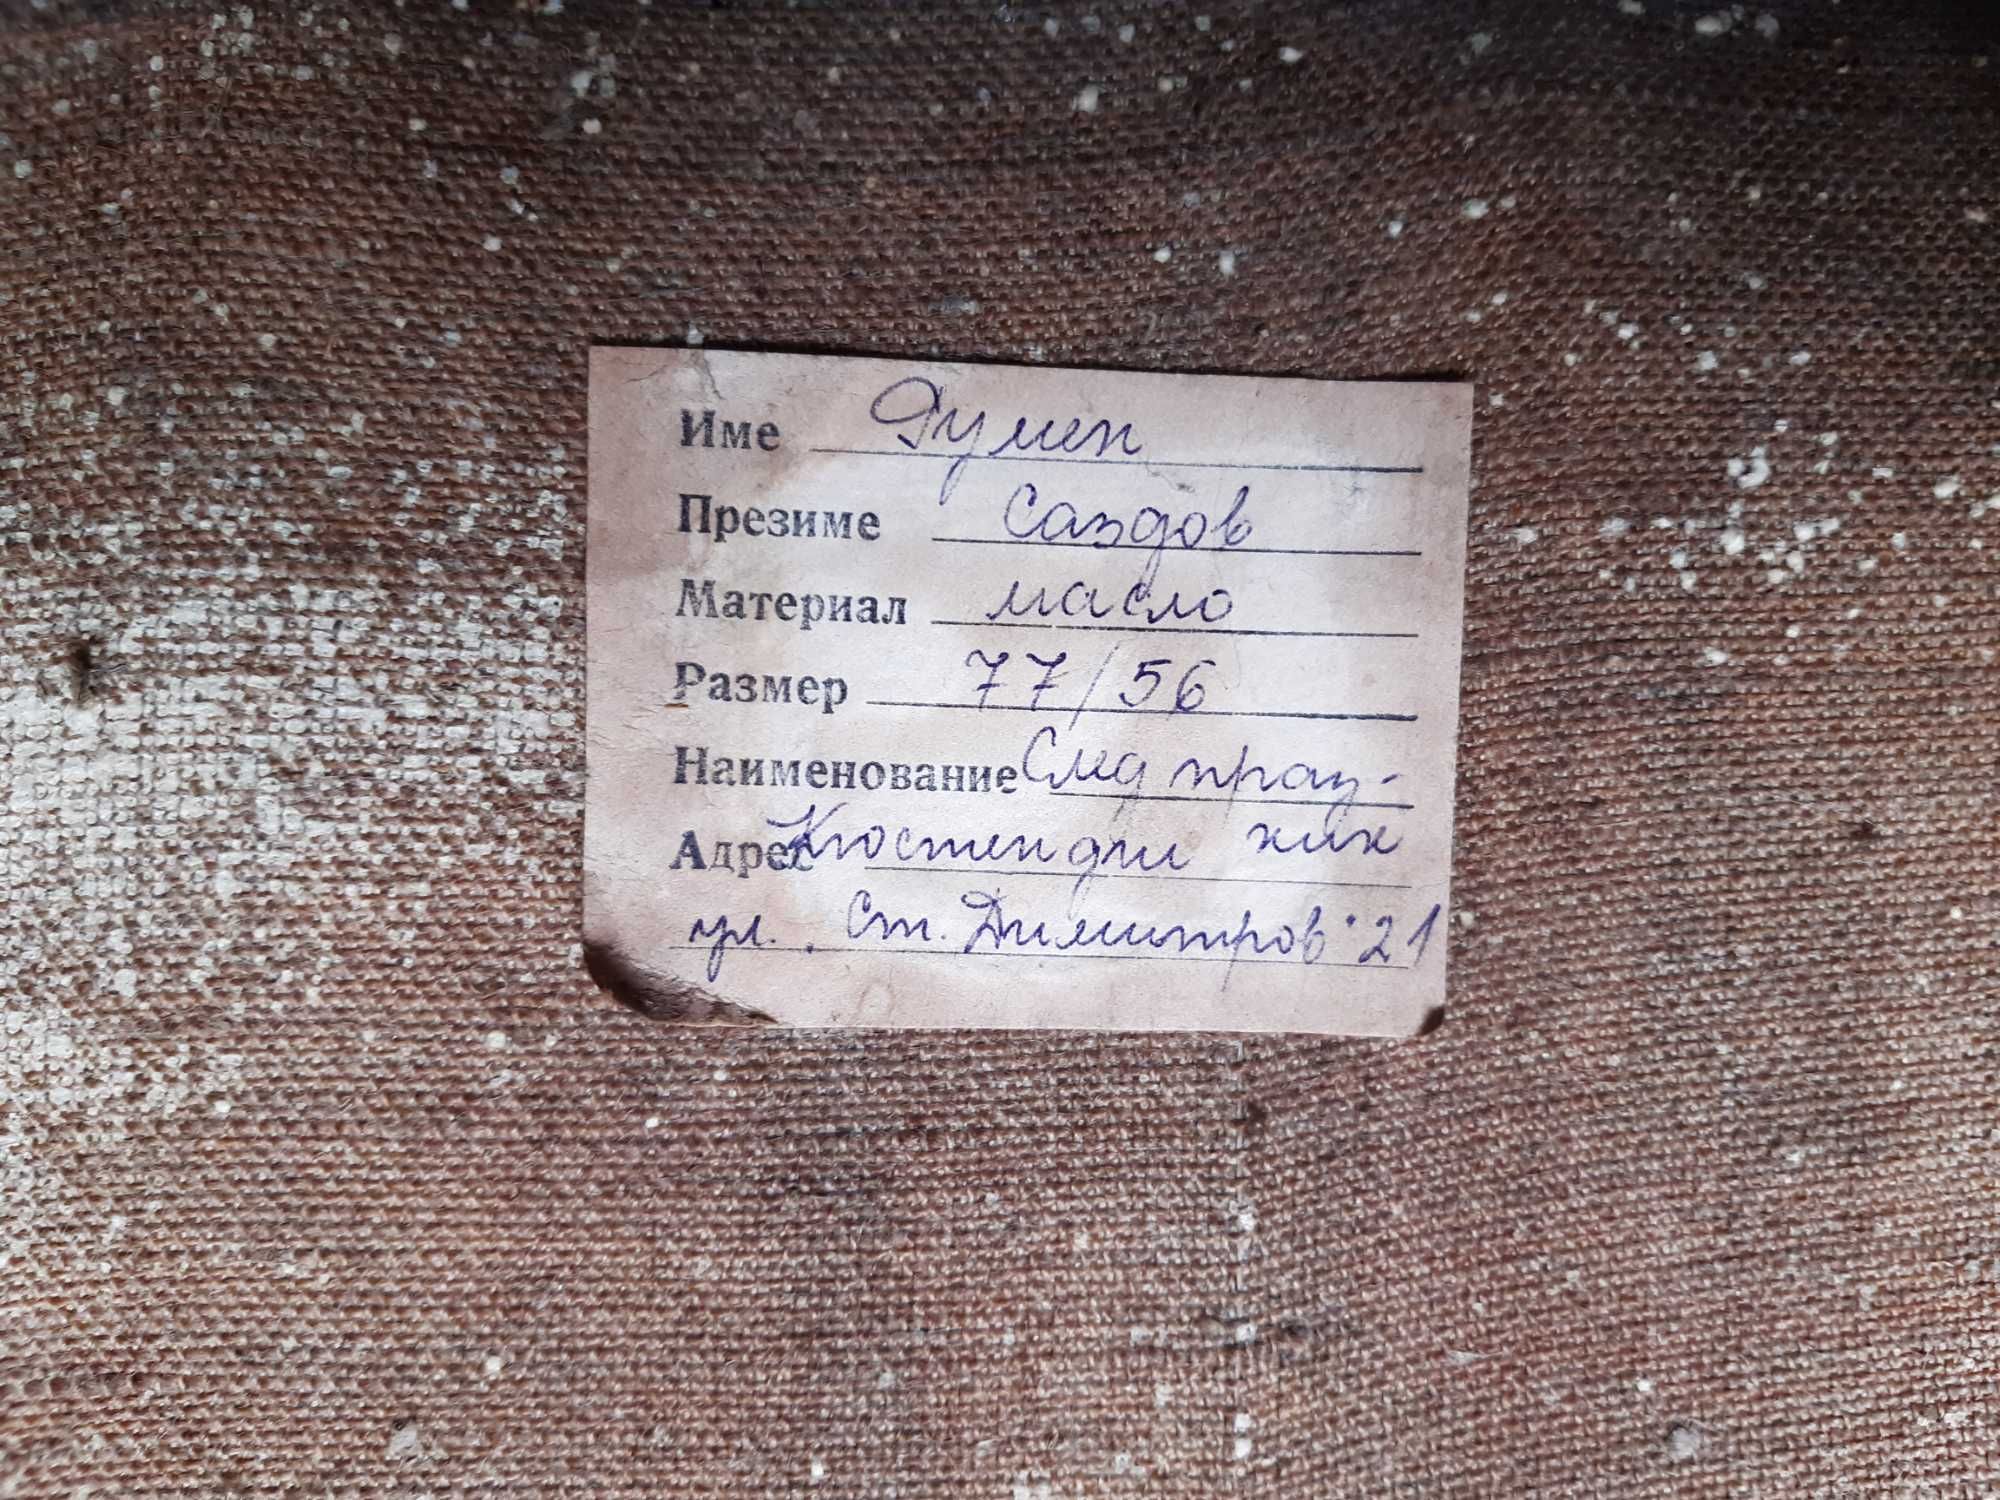 Име Румен
Презиме Саздов
Материал масло
Размер 77/56
Наименование След праз-
Адрес Кюстендил ник
ул. Ст. Димитров 21